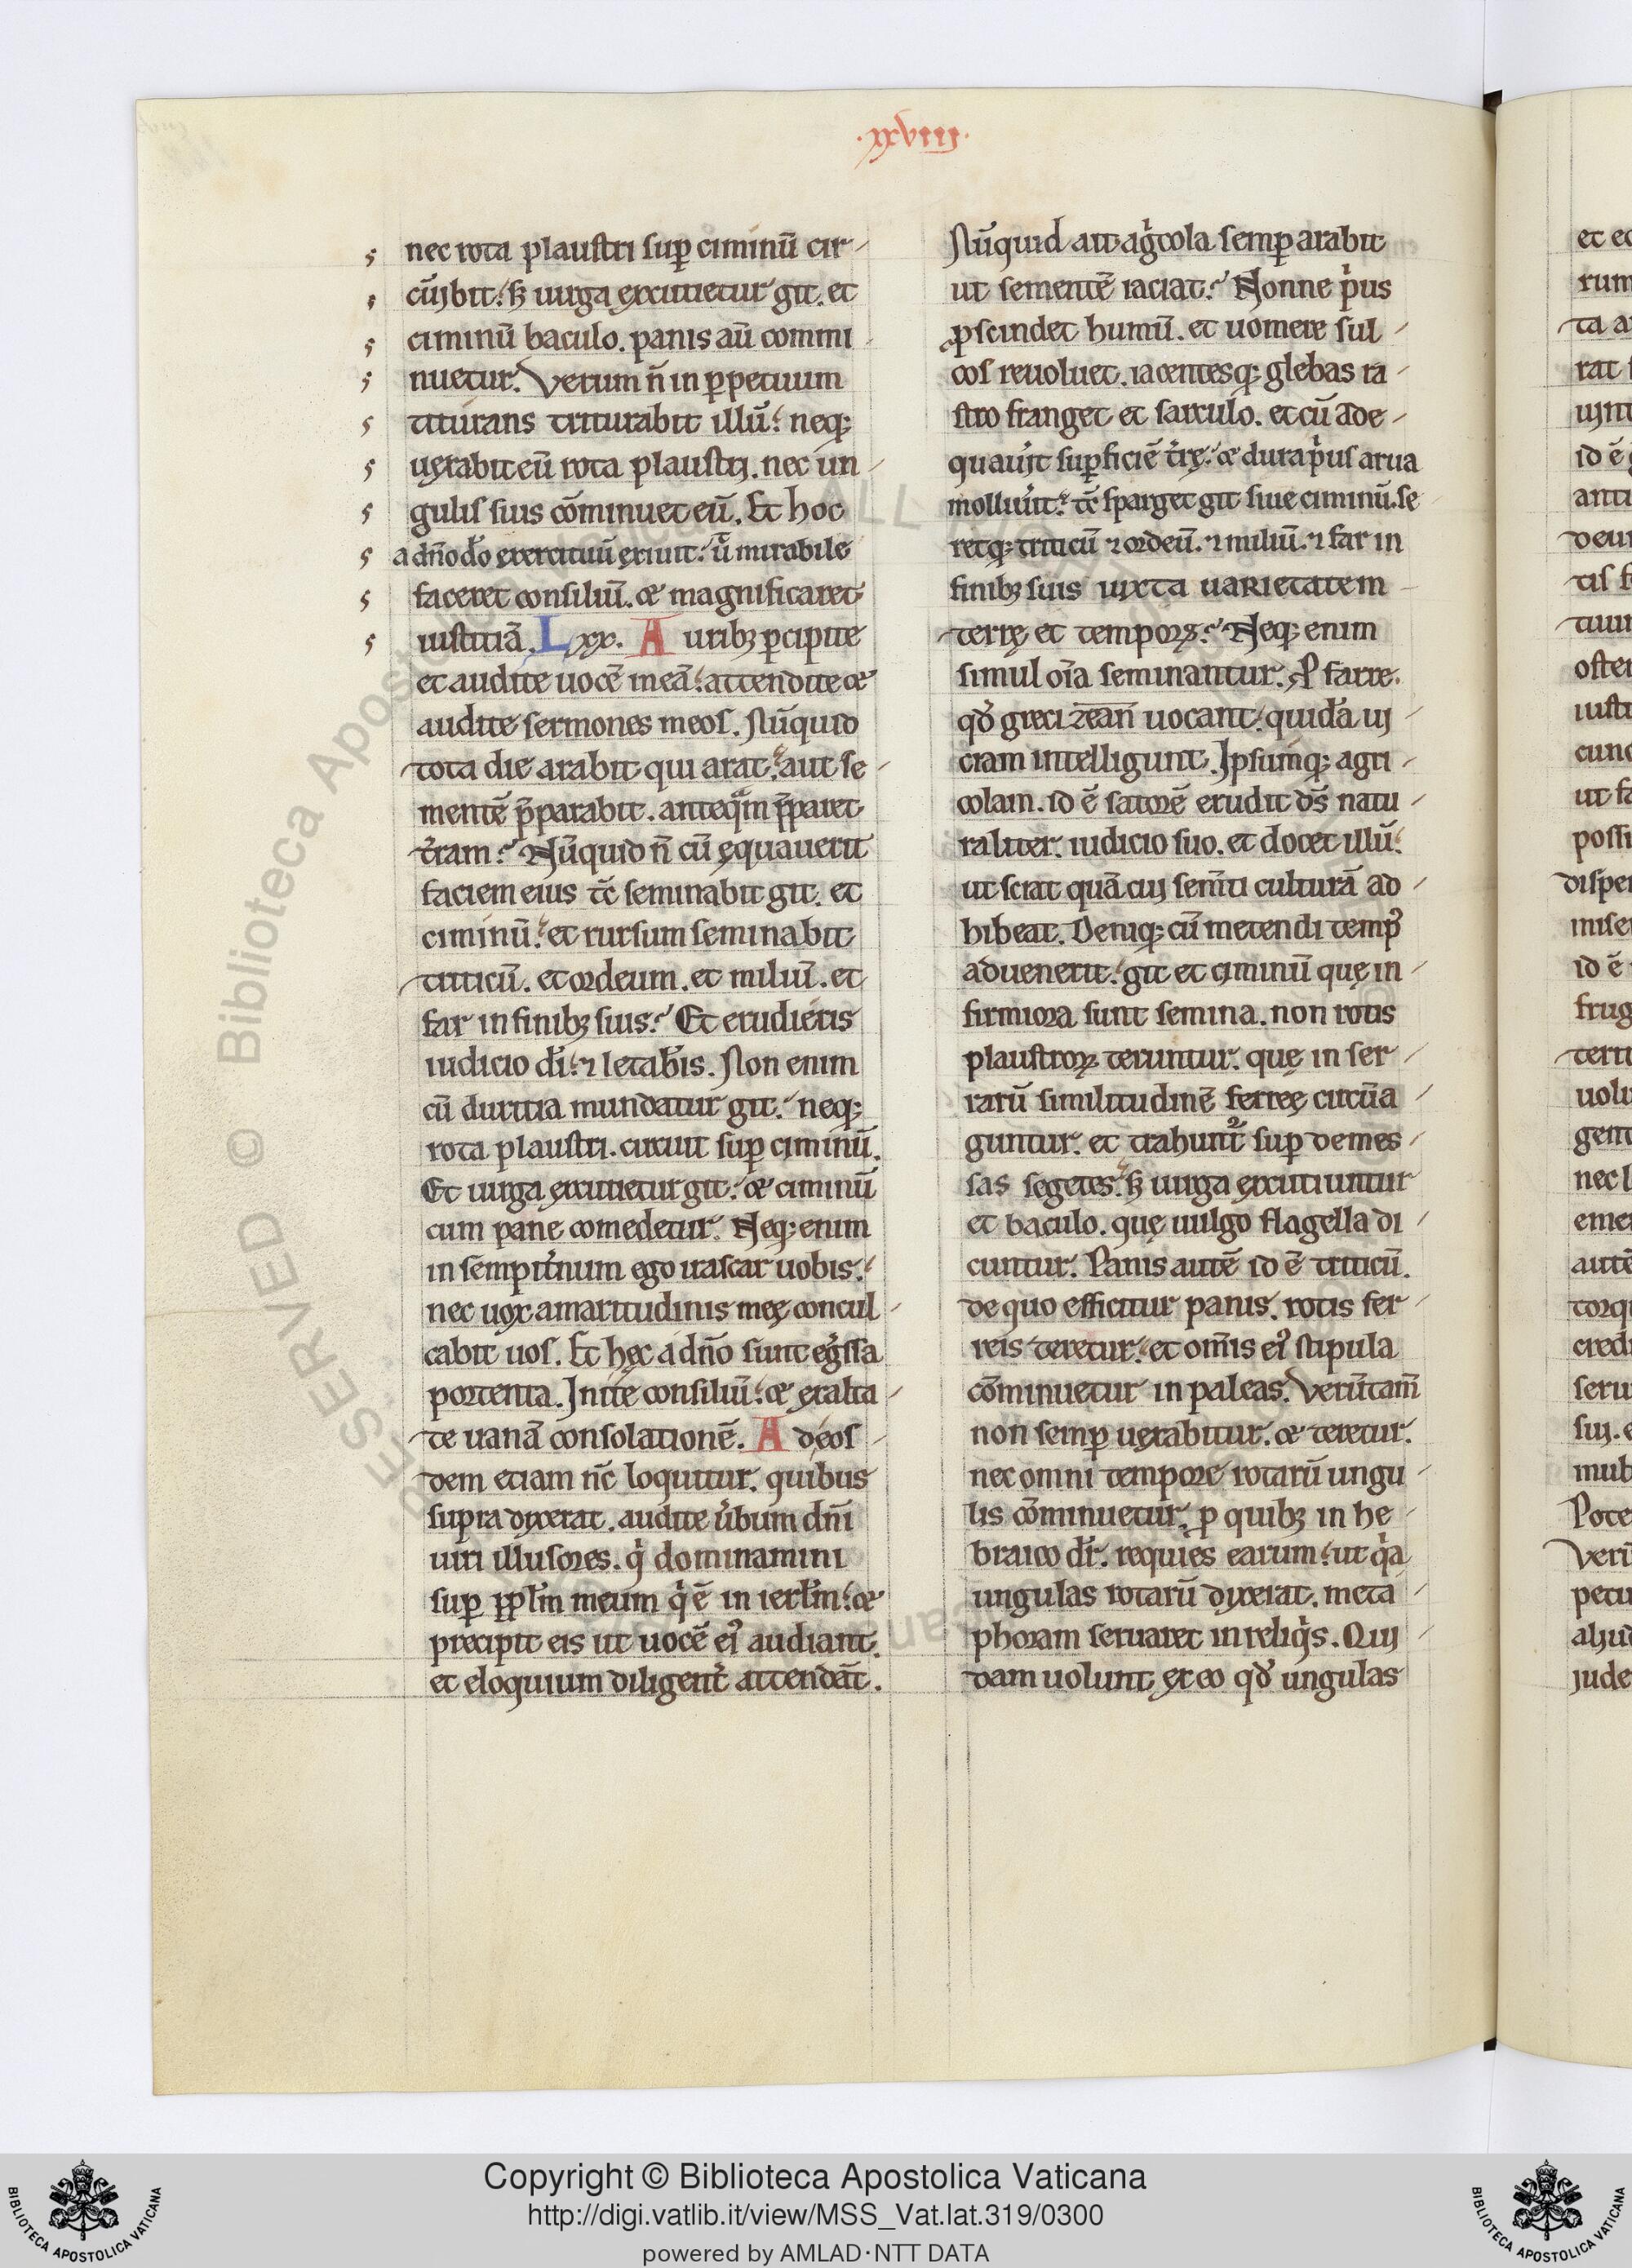 .xxviii.
nec rota plaustri sup̲ ciminū cir-
cūijbit. sꝫ uirga excutietur git. et
ciminū baculo. panis aū commi
nuetur. Verum n̄ in p̲petuum
titurans triturabit illū. neqꝫ
uexabit eū rota plaustri. nec un
gulis suis cōminuet eū. Et hoc
a dn̄o dō exercituū exiuit. ut̄ mirabile
faceret consiliū. & magnificaret
iustitiā. Lxx. Auribꝫ p̲cipite
et audite uocē meā. attendite &
audite sermones meos. Nūquid
tota die arabit qui arat. aut se
mentē p̄parabit. anteqͣm p̄paret
tr̄ram. Nūquid n̄ cū equauerit
faciem eius tc̄ seminabit git. et
ciminū. et rursum seminabit
triticū. et ordeum. et miliū. et
far in finibꝫ suis. Et erudieris
iudicio dī. ⁊ letab̄is. Non enim
cū duritia mundatur git. neqꝫ
rota plaustri. circuit sup̲ ciminū.
Et uirga excutietur git. & ciminū
cum pane comedetur. Neqꝫ enim
in sempit̄num ego irascar uobis.
nec uox amaritudinis meę concul
cabit uos. Et hęc a dn̄o sunt egͥssa
portenta. Inite consiliū. & exalta
te uanā consolationē. Ad eos
dem etiam nc̄ loquitur. quibus
supra dixerat. audite ūbum dn̄i
uiri illusores. qͥ dominamini
sup̲ pp̄lm meum qͥ ē in ierl̄m. &
precipit eis ut uocē eiꝰ audiant.
et eloquium diligent̄ attendāt.
Nūquid ait agͥcola semp̲ arabit
ut sementē iaciat. Nonne pͥus
ꝓscindet humū. et uomere sul
cos reuoluet. iacentesqꝫ glebas ra
stro franget et sarculo. et cū ade
quau̓it sup̲ficiē tr̄ę. & dura pͥus arua
molliu̓it. tc̄ sparget git siue ciminū. se
retqꝫ triticū ⁊ ordeū. ⁊ miliū. ⁊ far in
finibꝫ suis iuxta uarietatem
terrę et temporꝫ. Neqꝫ enim
simul oīa seminantur. P̲ farre.
qd̓ greci zean̄ uocant. quidā ui
ciam intelligunt. Ipsumqꝫ agri
colam. id ē satorē erudit ds̄ natu
raliter. iudicio suo. et docet illū.
ut sciat quā cui sem̄ti culturā ad
hibeat. Deniqꝫ cū metendi tempꝰ
aduenerit. git et ciminū quę in
firmiora sunt semina. non rotis
plaustroꝝ teruntur. quę in ser
rarū similitudinē ferreę circūa
guntur. et trahunt᷑ sup̲ demes
sas segetes. sꝫ uirga excutiuntur
et baculo. quę uulgo flagella di
cuntur. Panis autē id ē triticū.
de quo efficitur panis. rotis fer
reis teretur. et om̄is eiꝰ stipula
cōminuetur in paleas. Verūtam̄
non semp̲ uexabitur. & teretur.
nec omni tempore rotarū ungu
lis cōminuetur. p̲ quibꝫ in he
braico dr̄. requies earum. ut qͥa
ungulas rotarū dixerat. meta
phoram seruaret in reliqͥs. Qui
dam uolunt ex eo qd̓ ungulas
Copyright © Biblioteca Apostolica Vaticana
http://digi.vatlib.it/view/MSS_Vat.lat.319/0300
powered by AMLAD·NTT DATA
BIBLIOTECA APOSTOLICA VATICANA
BIBLIOTECA APOSTOLICA VATICANA